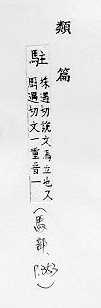 類篇
駐
株遇切說文馬立也又
厨遇切文一重音一
(馬部、